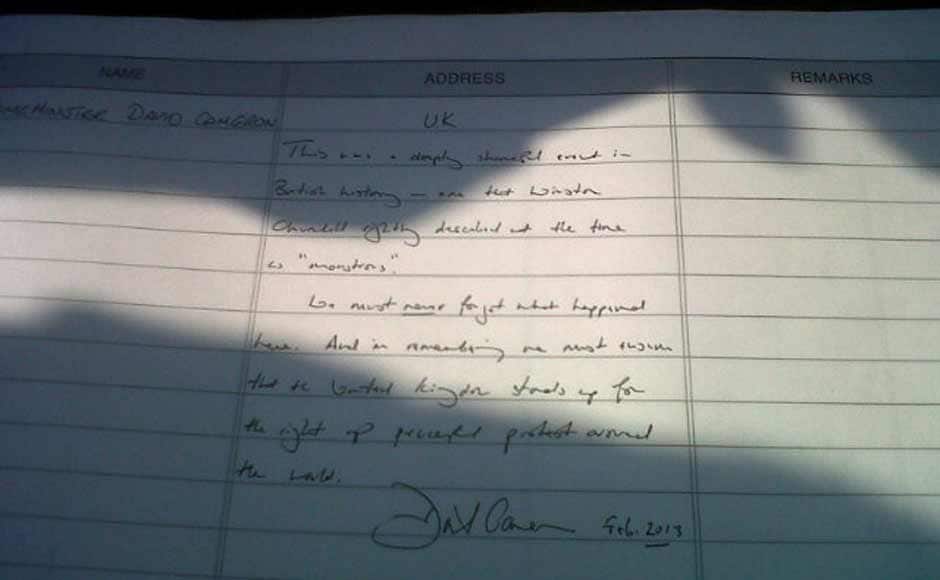 NAME ADDRESS REMARKS
PRIME MINISTER DAVID CAMERON UK
This was a deeply shameful event in
British history – one that Winston
Churchill rightly described at the time
as "monstrous".
We must never forget what happened
here. And in remembering we must ensure
that the United Kingdom stands up for
the right of peaceful protest around
the world.
David Cameron Feb. 2013